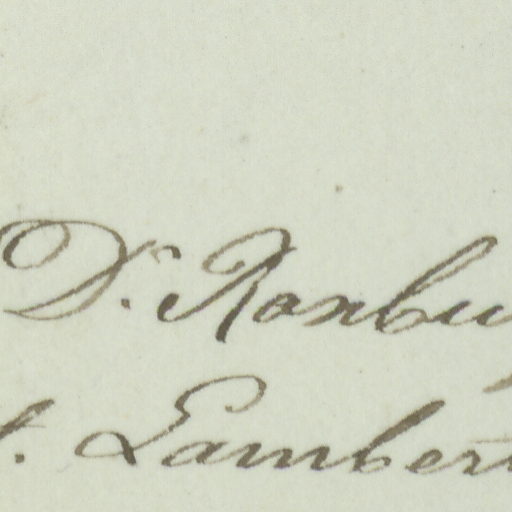 Dr. Roxbu
t. Lambert